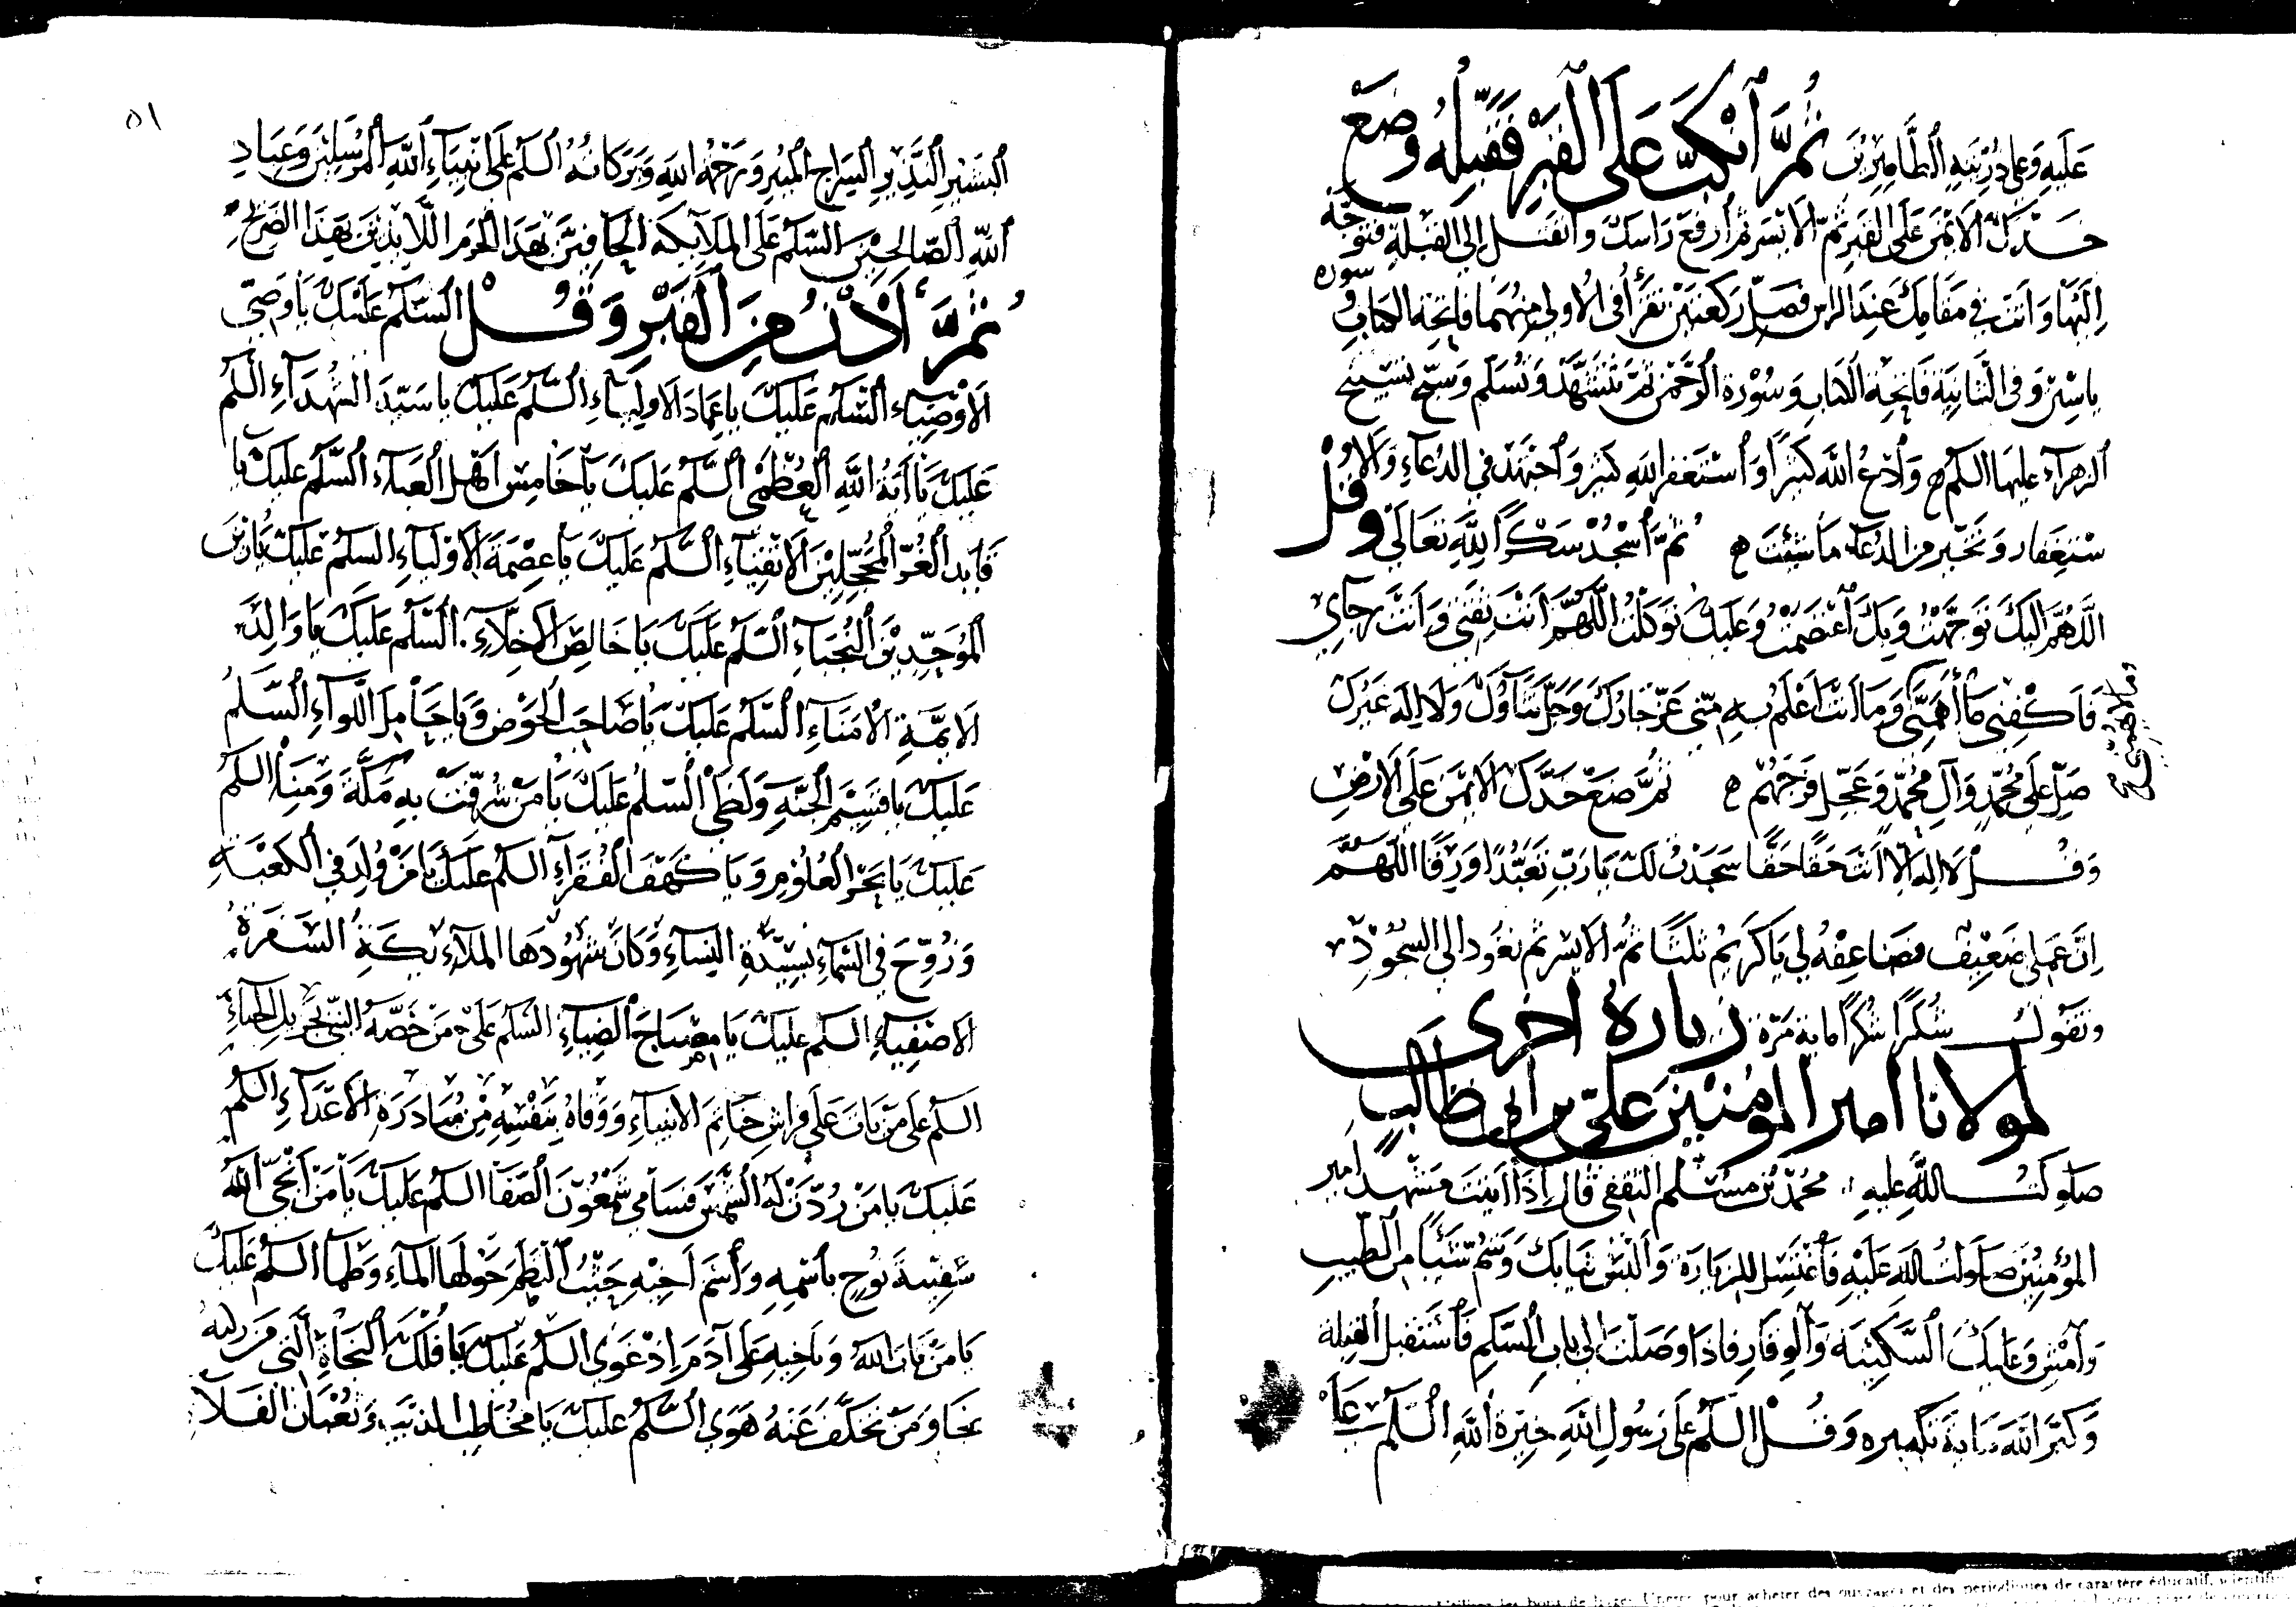 عَلَيهِ وَعَلى ذُرِّيَتِهِ الطَّاهِرِيْنَ ثُمَّ اَنْكَبَّ عَلَى القَبْرِ فَقَبِّلِهُ وضَعْ
خَدَّكَ الاَيْمَنَ عَلَى القَبرِ ثُمّ الاَيْسَرَ ثم اَرفَعْ رَاسَكَ وانفَتِل إلى القِبْلَةِ فتوَجّه
اِلَيْهَا وَاَنتَ في مَقَامِكَ عِندَ الراس فصَلّ ركعَتَيْنِ تقرَأُ في الاُولى مِنهُمَا فاتِحَة الكتابِ وسُورة
ياسِيْنَ وَفى الثَانِيَة فَاتِحِة الكتابِ وسُوْرة الرَّحْمَنِ ثمّ تتشَهَّدْ وتُسَلم وَسَبّح تسْبِيحَ
الزهرآء عليها السلم ه وَاُدْعُ اللهَ كثيرًا وَاُستَغفر اللهِ كثيرً وَاُجتَهِدْ في الدُعآءِ وَالاِ
ستِغفَار وَتَخَيّر مِنَ الدعآء مَا شِئتَ ه ثُمَّ اُسْجُدْ شكْرًا لِلّهِ تعَالَى وقُل
اللَّهُمَّ اِلَيكَ تَوَجَّهْتُ وَبِكَ اَعْتَصَمْتُ وَعَلَيكَ تَوَكّلْتُ اللَّهُمَّ اَنتَ ثِقَتي وَاَنتَ رجَآئي
فَاكْفِني مَا اَهَمَّني وَمَا اَنتَ اَعْلَم بِهِ مِنّي عَزَّ جَارُكَ وَجَلَّ ثَنآؤُكَ وَلَا اِلَه غَيْرُكَ
صَلّ عَلَى مُحَمّدٍ وَآلِ مُحَمّدٍ وَعَجّل فَرَجَهُم ه ثُمَّ ضَعْ خَدَّكَ الاَيْمَنَ عَلَى الاَرْضِ
وَقُل لَا اِلهَ اِلّا اَنتَ حَقًا حَقًّا سَجَدْتُ لَكَ يَا رَبِّ تعَبُّدًا وَرِقًا اللَّهُمَّ
اِنَّ عَمَلي ضَعِيفٌ فضَاعِفْهُ لي يَا كَرِيْمُ ثلثًا ثمَّ الاَيسَر ثم تعُود الى السجُودِ
وتقُول شُكرًا شُكرًا ماية مَرّة زيارة اُخرى
لمولانا امير المؤمنين علي بن ابي طالبٍ
صلوات الله عليهِ محُمّدْ بن مسْلم الثقفى قال اِذَا اَتيتَ مَشْهد امير
المؤمنِيْنَ صَلَوات الله عَلَيْهِ فَاُغْتَسِل للزِيارَة وَاَلْبَسْ ثيَابَكَ وَشُم شَيْئًا مِن الطّيبِ
وَاَمْشِ وَعَلَيكَ السَّكِيْنَة وَالوِقَارِ فاذَا وَصَلتَ اِلى بابِ السَّلَم فَاَسْتَقْبِل القِبلة
وَكَبّر اللهَ ماية تكبيره وَقُل السلم عَلى رَسُولِ اللهِ خِيَرَةِ اللهِ السلم عَلَى
٥١
البَشِيْرِ النَّذِيرِ السِّرَاجِ المُنيرِ وَرَحْمَة اللهِ وَبَرَكاتهُ السلم عَلى اَنبِيَاءِ اللهِ المُرْسَلِيْنَ وَعِبَادِ
اللهِ الصَّالحِيْنَ السَّلم عَلَى المَلآيكة الحَافِيّنَ بهَذَا الحَرَم اللّايذِيْنَ بهَذَا الضَرِيحِ
ثُمَّ اُدْنُ مِنَ القَبْرِ وَقُلْ السَّلَم عَلَيْكَ يَا وَصِيّ
الاَوْصِيَاء السَّلم عَلَيْكَ يا عِمَادَ الاَولِيَاءِ السَّلم عَلَيكَ يا سَيّدَ الشُهَدَآءِ السلم
عَلَيكَ يَا اَيَةُ اللهِ العُظْمَى السَّلم عَلَيكَ يَا خَامِسَ اَهْلِ العَبَاء السَّلم عَليكَ يا
قَايد الغُرّ المُحَجّلِيْنَ الاَتقِيَآءِ السَّلم عَلَيكَ يَا عِصْمَةَ الاَوْليَاءِ السلم عَليكَ يَا زَيْنَ
المُوَحِّدِيْنَ النُّجَبَاءِ السّلم عَلَيكَ يَا خَالِصَ الاَخِلّاءِ السّلَم عَليكَ يَا وَالِدَ
الايمَّةِ الاُمَنَاءِ السَّلَم عَلَيكَ يَا صَاحِبَ الحَوْضِ وَيَا حَامِلَ اللِّوآءِ السَّلَمُ
عَليكَ يا قسِيْمَ الجَنّةِ وَلَظَى السّلمُ عَلَيكَ يَا مَنْ شُرِّفَتْ بِهِ مَكّةَ وَمِنَاْ السلم
عَليكَ يَا بَحْر العُلُوْمِ وَيَا كَهْفَ الفُقَرَآءِ السلم عَلَيكَ يَا مَنْ وُلِدَ في الكَعْبَةِ
وَزُوِّجَ في السَّمآء بِسَيّدَةِ النِسَاءِ وَكَانَ شهُودهَا المَلآئِكةِ السَفَرةُ
الاصْفِيآء السلم عليكَ يَا مِصْبَاحَ الضِيَاءِ السلم عَلَى مَن خَصَّهُ النّبيّ بجَزيلِ الحِبَاءِ
السلم عَلى مَن بَاتَ عَلَى فِراشِ خَاتِمَ الانبِيَآءِ وَوَقَاهُ بِنَفْسِهِ مِنْ مُبَادَرَةِ الاَعْدَآءِ السلم
عَليكَ يا مَنْ رُدّتْ لَهُ الشَّمْسَ فَسَامَى شَمْعُوْنَ الصَّفَا السلم عَلَيكَ يَا مَن اَنْجَى اللهُ
سَفِيْنةَ نُوحٍ باسْمِهِ وَاُسْمِ اَخِيْهِ حَيْثُ التَطَمَ حَوْلهَا المآءِ وَطَمَا السلم عَلَيكَ
يَا مَنْ تابَ اللهُ وَبَاخِيهِ عَلَى آدَمَ اِذْ غَوَى السلم عَلَيكَ يَا فُلْكَ النّجَاةِ التي مَن رَكِبَهُ
نجَا وَمَنْ تخَلّفَ عَنهُ هَوَى السَّلم عَليكَ يَا مخُاطِبَ الذئب وَثُعْبَانَ الفَلا